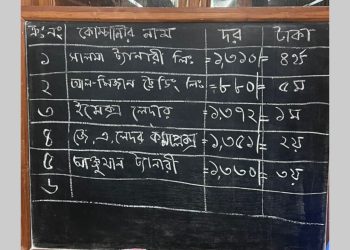 ক্রঃ নং কোম্পানীর নাম দর টাকা
১ সালমা ট্যানারী লিঃ =১,৩১০/= ৪র্থ
২ আল-মিজান ট্রেডিং লিঃ =৮৮০/= ৫ম
৩ ইমেক্স লেদার =১৩৭২/= ১ম
৪ জে, এ, লেদর কমপ্লেক্স =১,৩৫১/= ২য়
৫ আঞ্জুমান ট্যানারী =১,৩৩০/= ৩য়
৬